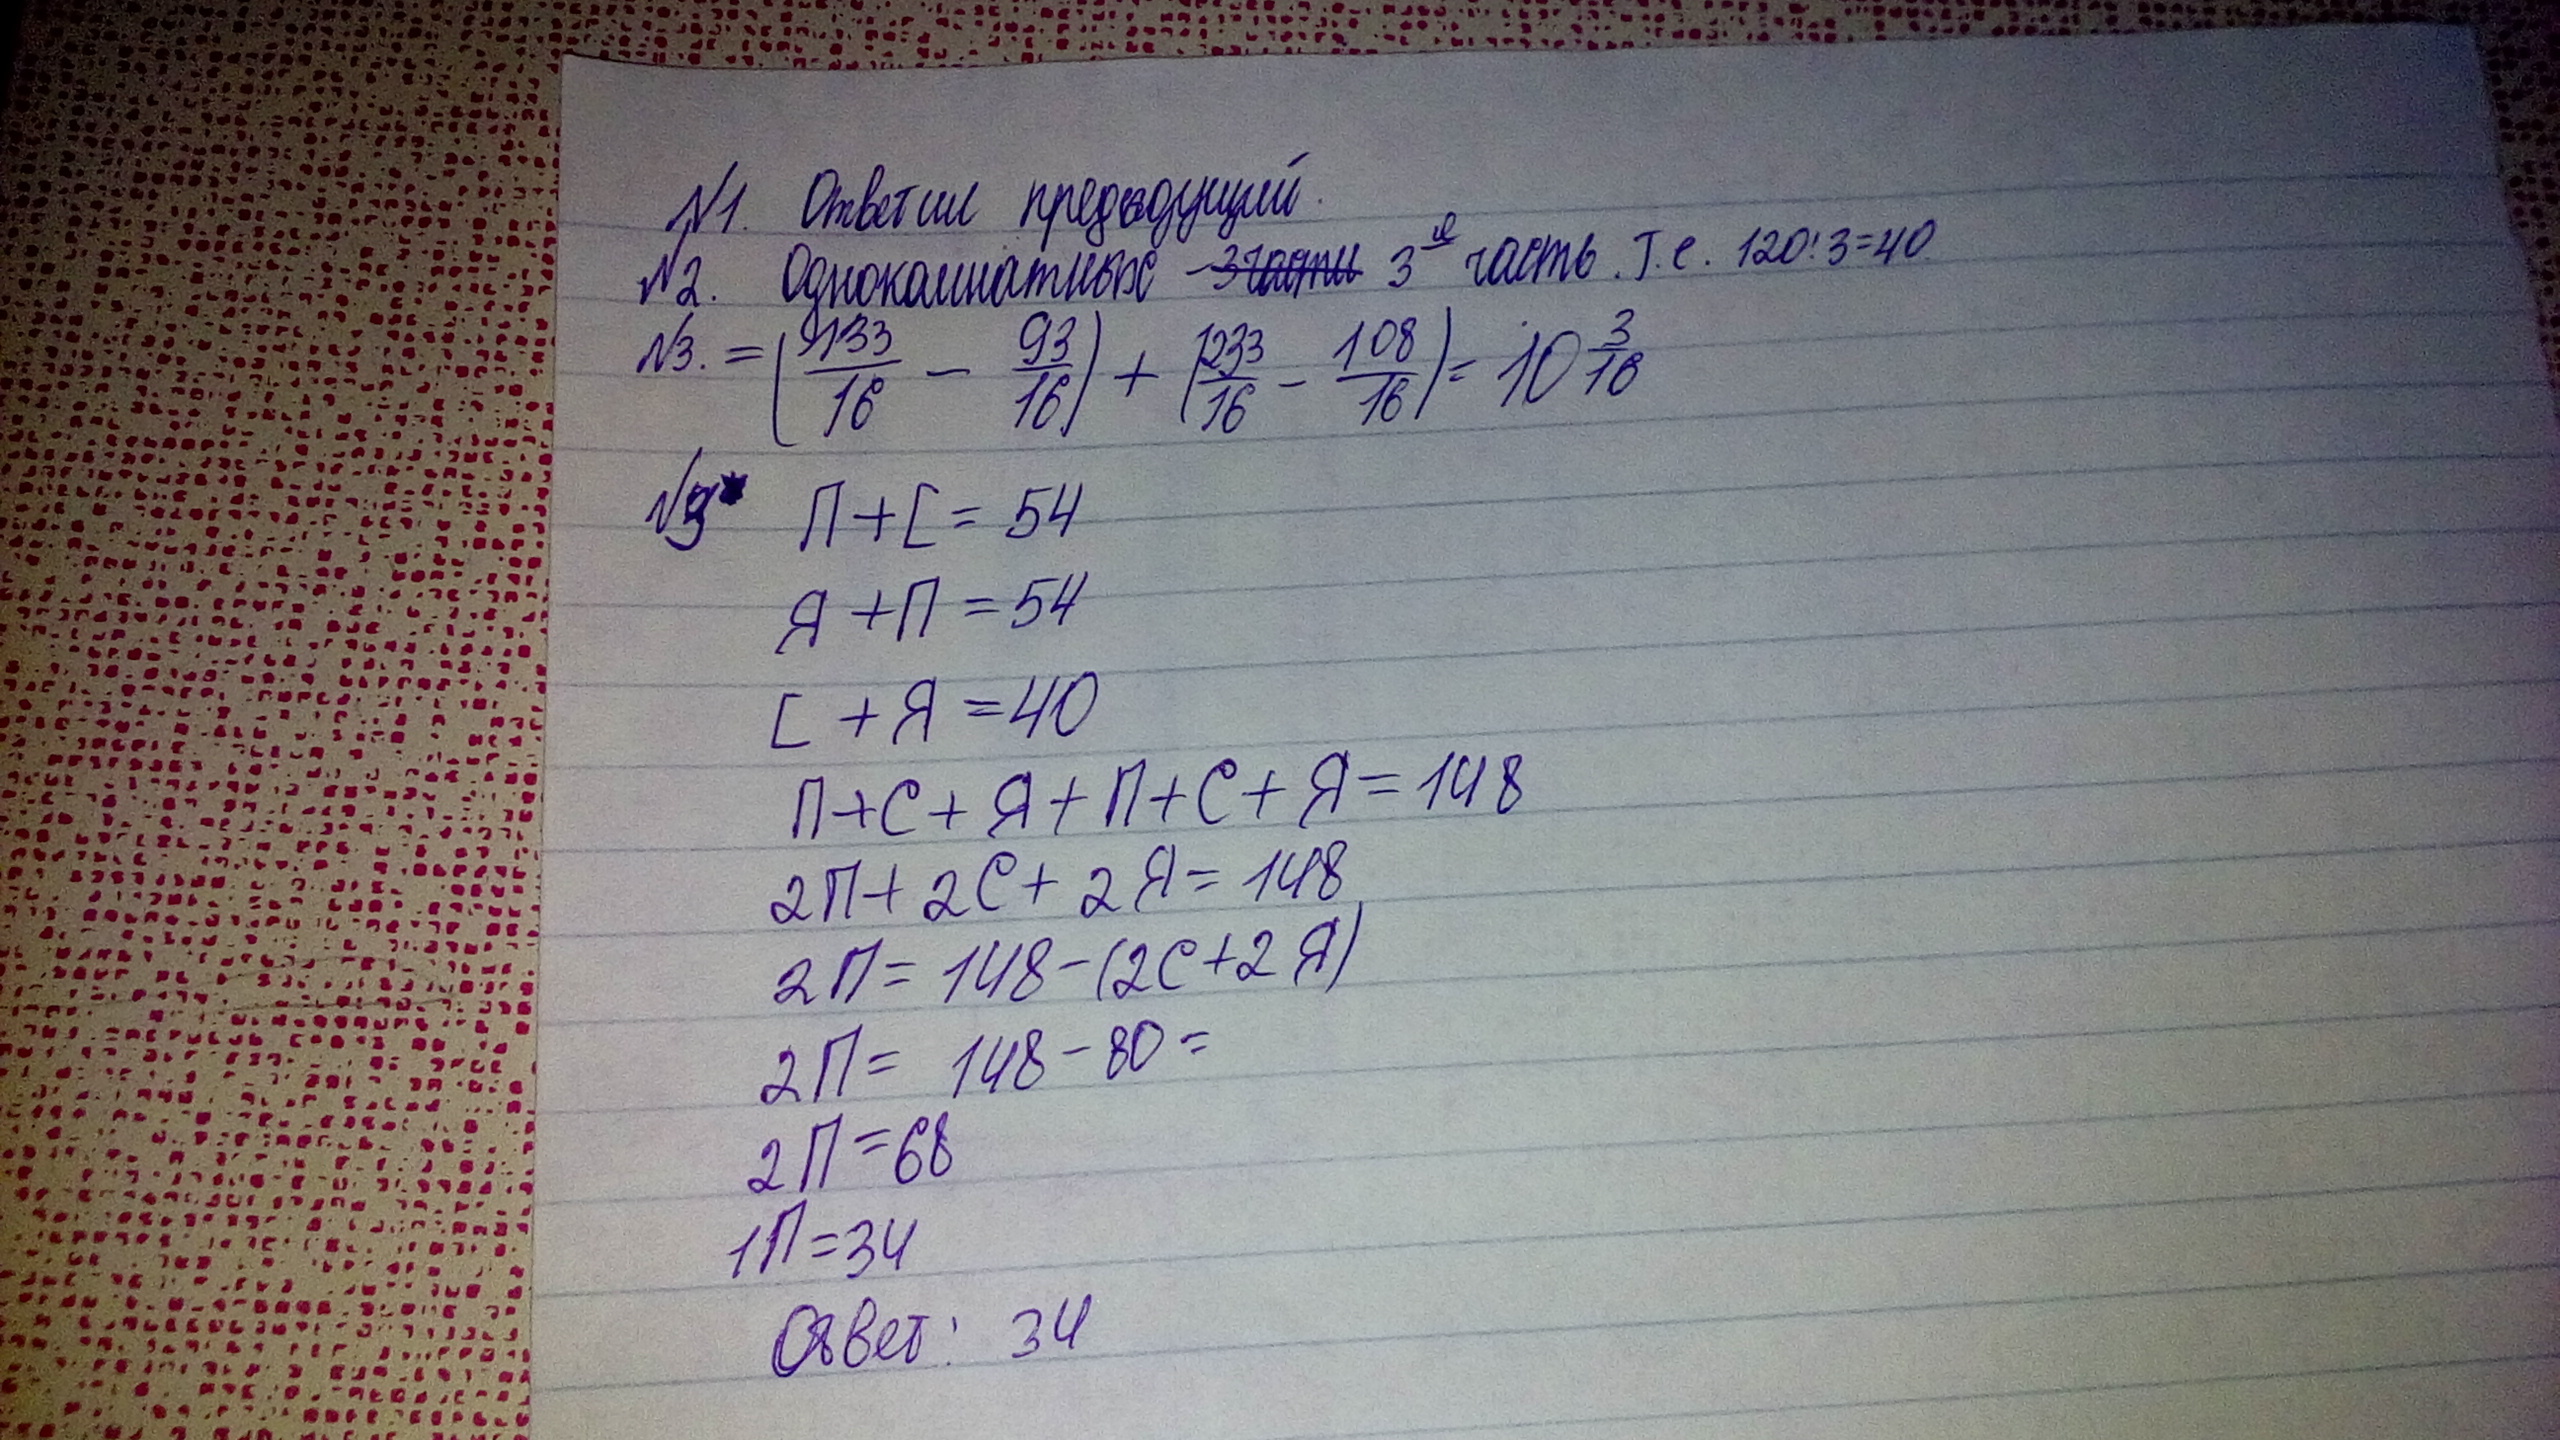 №1. Ответил предыдущий.
№2. Однокомнатных - 3 части 3я часть. Т.е. 120:3=40
№3. = (133/16 - 93/16) + (233/16 - 108/16) = 10 3/16
П+С= 54
Я+П=54
С+Я=40
П+С+Я+П+С+Я=148
2П+2С+2Я=148
2П=148-(2С+2Я)
2П= 148-80=
2П=68
1П=34
Ответ: 34